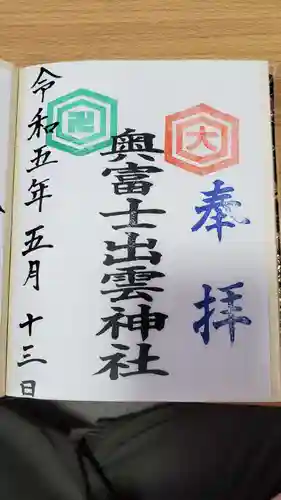 大
奉拝
卍
奥富士出雲神社
令和五年五月十三日